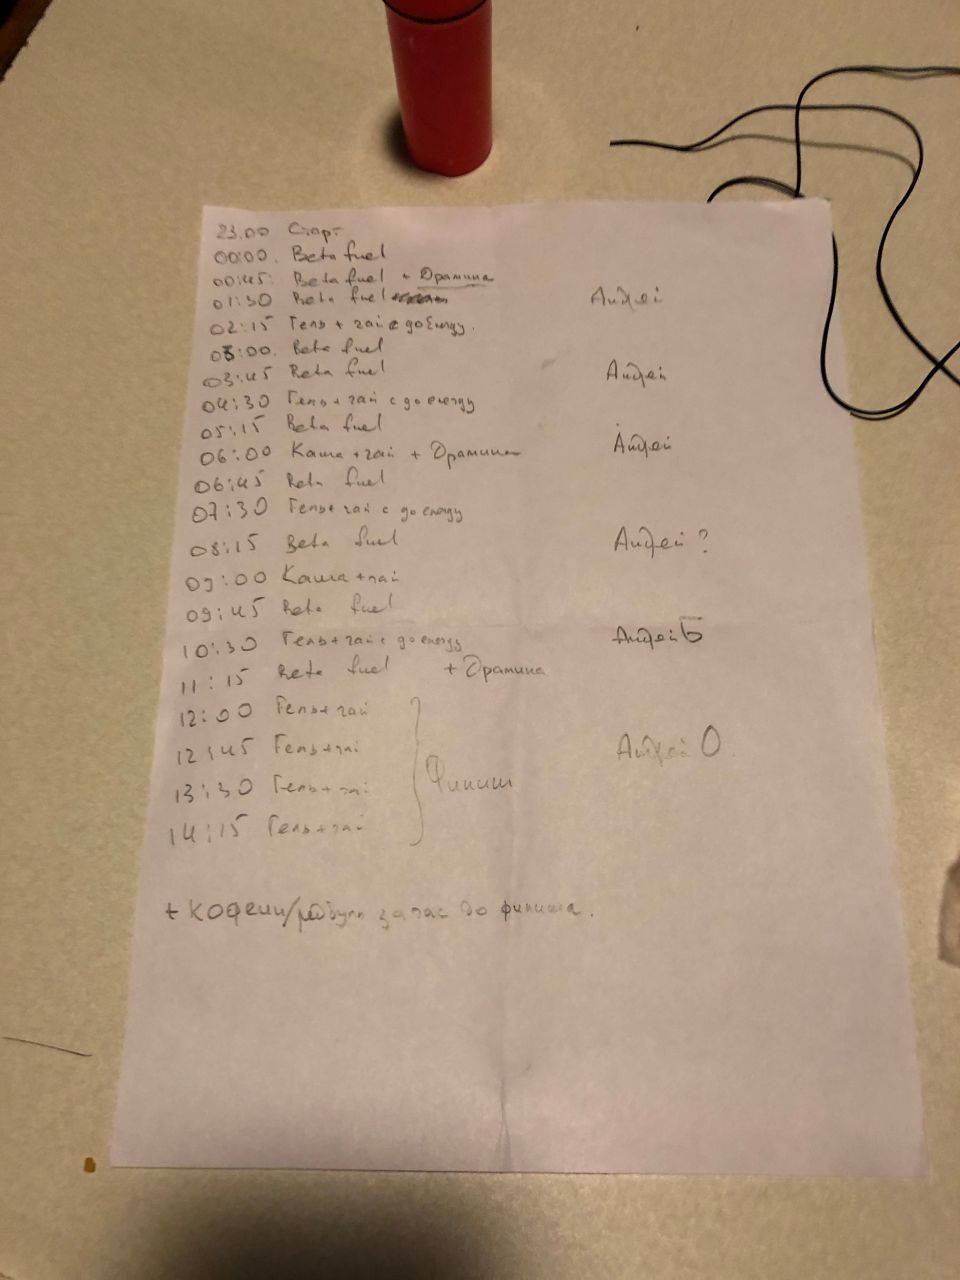 23.00 Старт
00:00. Beta fuel
00:45: Beta fuel + Драмина
01:30 Beta fuel Андрей
02:15 Гель + чай с до energy.
03:00. Beta fuel
03:45 Beta fuel Андрей
04:30 Гель + чай с до energy
05:15 Beta fuel
06:00 Каша + чай + Драмина Андрей
06:45 Beta fuel
07:30 Гель + чай с до energy
08:15 Beta fuel Андрей ?
09:00 Каша + чай
09:45 Beta fuel
10:30 Гель + чай с до energy Андрей Б
11:15 Beta fuel + Драмина
12:00 Гель + чай
12:45 Гель + чай Андрей О.
13:30 Гель + чай Финиш
14:15 Гель + чай
+ кофеин/редбулл запас до финиша.